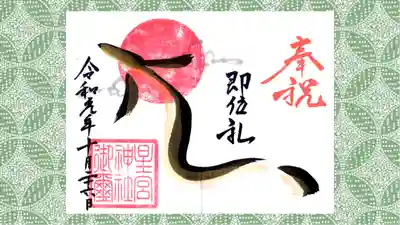 奉祝
即位礼
令和元年十月
星宮
神社
御璽